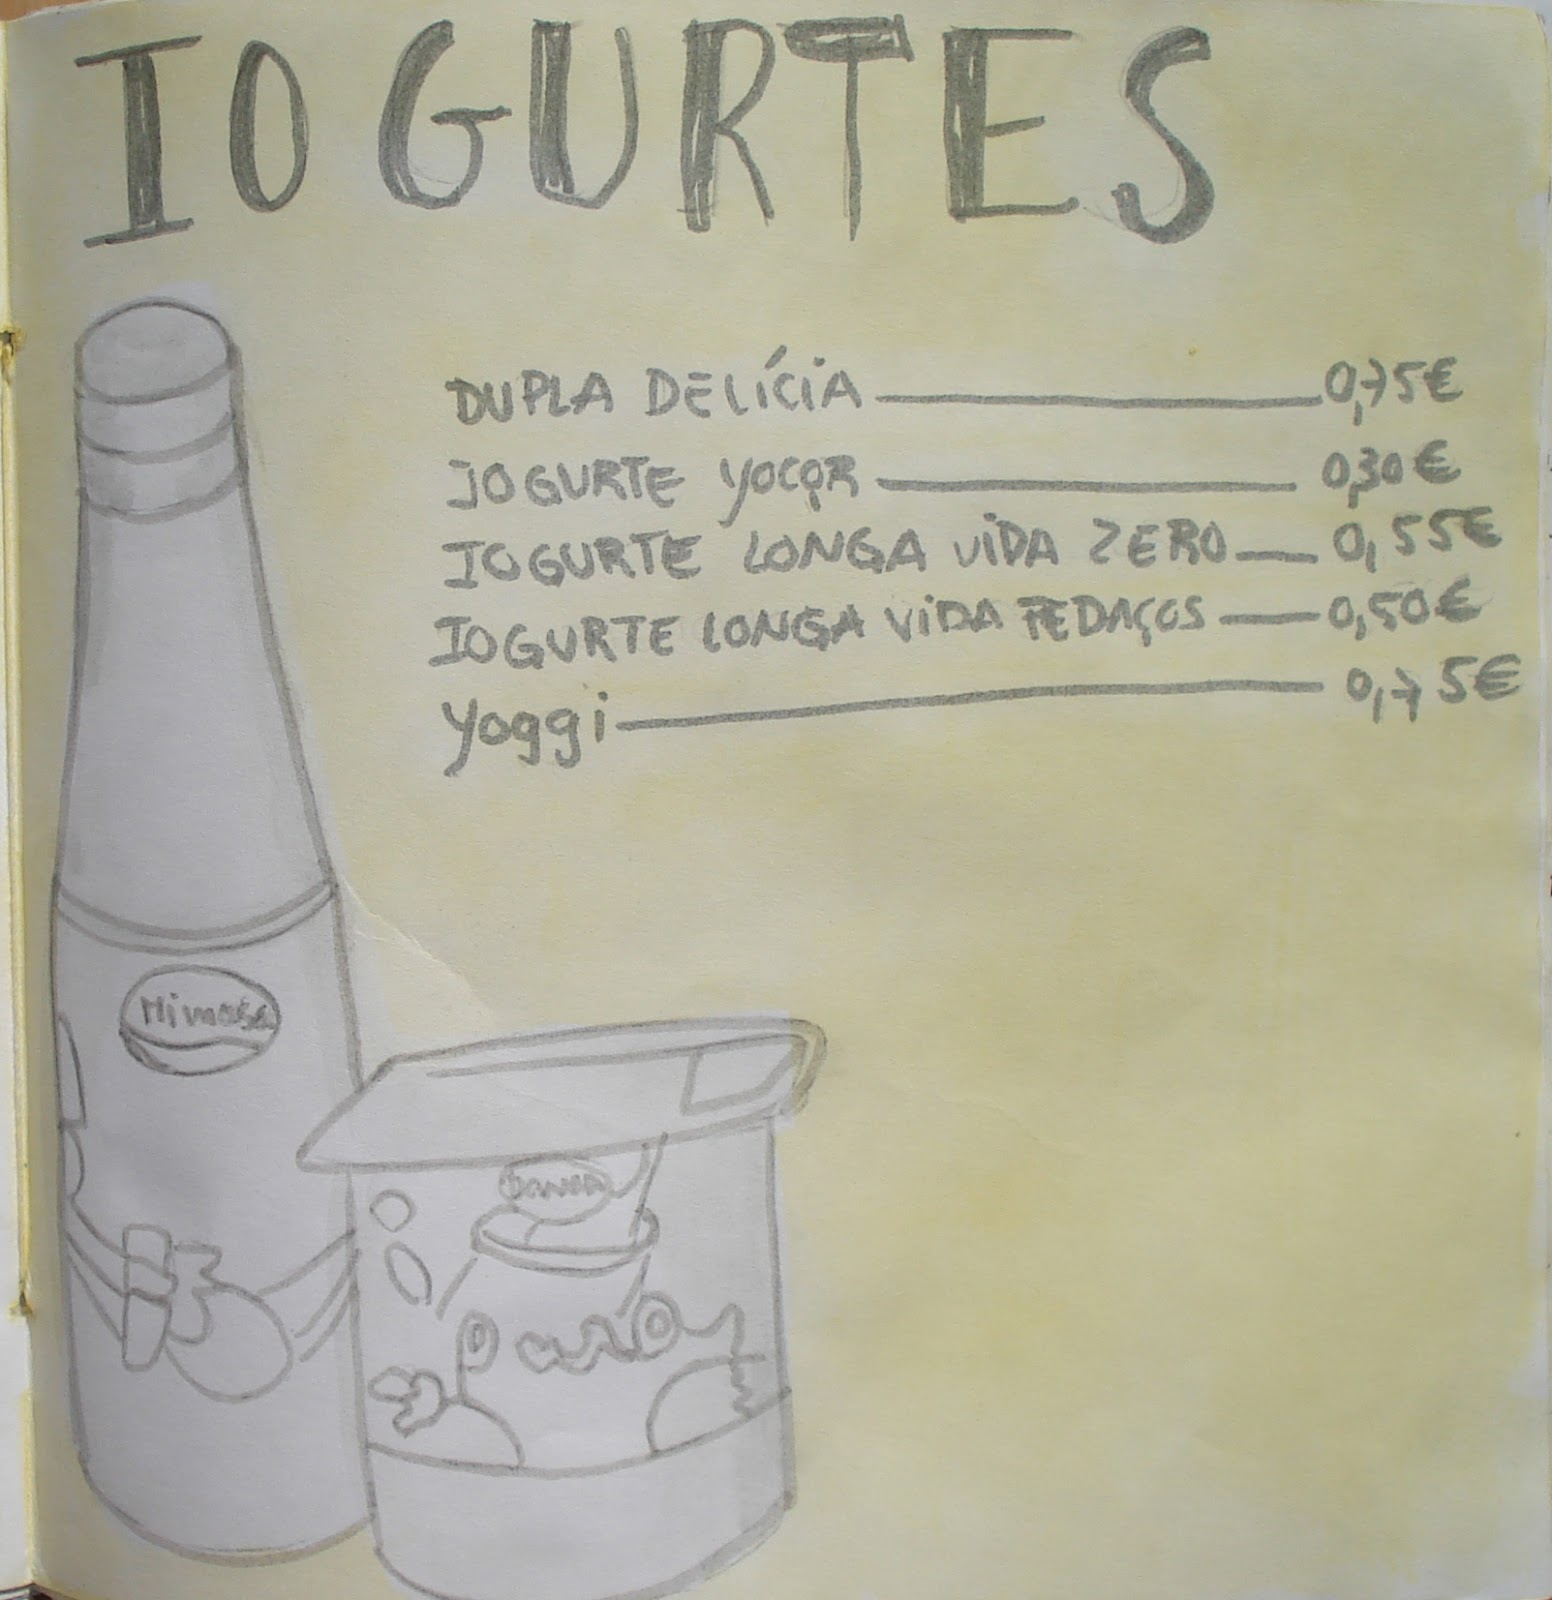 IOGURTES
DUPLA DELÍCIA 0,75€
IOGURTE YOCOR 0,30€
IOGURTE LONGA VIDA ZERO 0,55€
IOGURTE LONGA VIDA PEDAÇOS 0,50€
Yoggi 0,75€
Mimosa